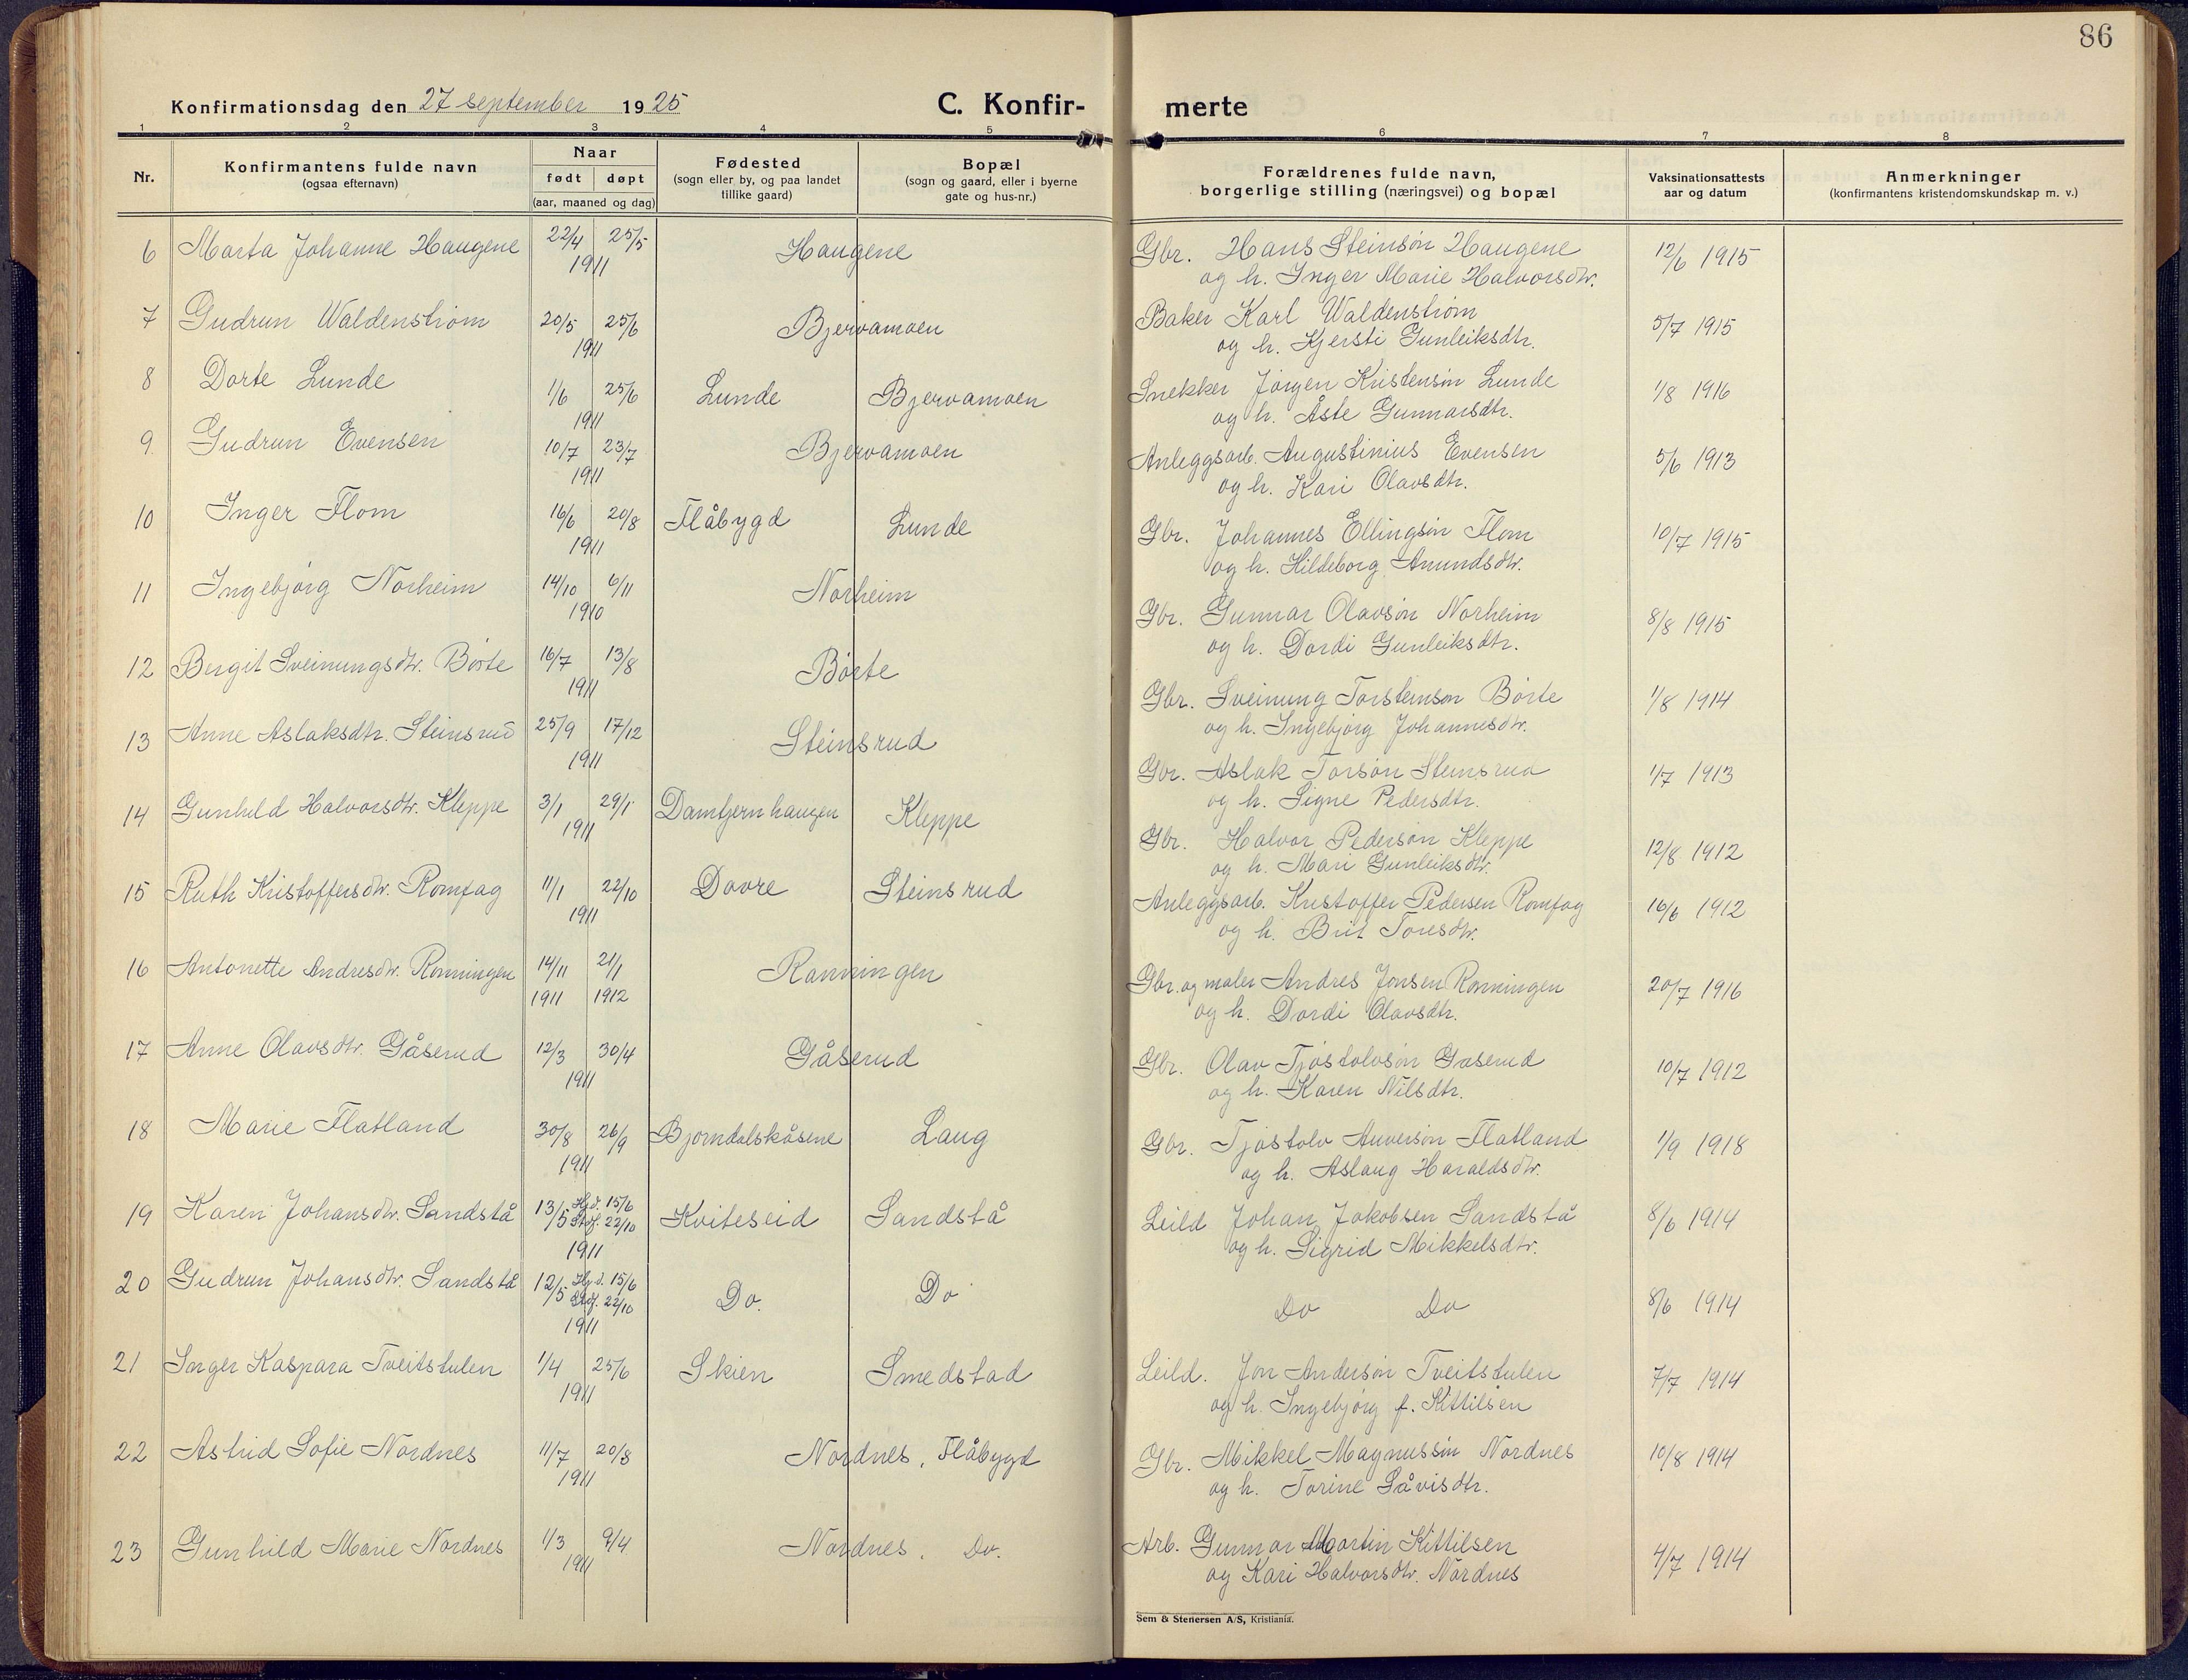 86
Konfirmationsdag den 27 september 1925
C. Konfirmerte
1 2 3 4 5 6 7 8
Nr.
Konfirmantens fulde navn
(ogsaa efternavn)
Naar
født døpt
(aar, maaned og dag)
Fødested
(sogn eller by, og paa landet
tillike gaard)
Bopæl
(sogn og gaard, eller i byerne
gate og hus-nr.)
Forældrenes fulde navn,
borgerlige stilling (næringsvei) og bopæl
Vaksinationsattests
aar og datum
Anmerkninger
(konfirmantens kristendomskundskap m. v.)
6 Marta Johanne Haugene 22/4 25/5 Haugene Gbr. Hans Steinsøn Haugene 12/6 1915
1911 og h. Inger Marie Halvorsdtr.
7 Gudrun Waldenstrøm 20/5 25/6 Bjervamoen Baker Karl Waldenstrøm 5/7 1915
1911 og h. Kjersti Gunleiksdtr.
8 Dorte Lunde 1/6 25/6 Lunde Bjervamoen Snekker Jørgen Kristensøn Lunde 1/8 1916
1911 og h. Åste Gunnarsdtr.
9 Gudrun Evensen 10/7 23/7 Bjervamoen Anleggsarb. Augustinius Evensen 5/6 1913
1911 og h. Kari Olavsdtr.
10 Inger Flom 16/6 20/8 Flåbygd Lunde Gbr. Johannes Ellingsøn Flom 10/7 1915
1911 og h. Hildeborg Amundsdtr.
11 Ingebjørg Norheim 14/10 6/11 Norheim Gbr. Gunnar Olavsøn Norheim 8/8 1915
1910 og h. Dordi Gunleiksdtr.
12 Birgit Sveinungsdtr. Børte 16/7 13/8 Børte Gbr. Sveinung Torsteinson Børte 1/8 1914
1911 og h. Ingebjørg Johannesdtr.
13 Anne Aslaksdtr. Steinsrud 25/9 17/12 Steinsrud Gbr. Aslak Torsøn Steinsrud 1/7 1913
1911 og h. Signe Pedersdtr.
14 Gunhild Halvorsdtr. Kleppe 3/1 29/1 Damtjernhaugen Kleppe Gbr. Halvor Pedersøn Kleppe 12/8 1912
1911 og h. Mari Gunleiksdtr.
15 Ruth Kristoffersdtr. Romfog 11/1 22/10 Dovre Steinsrud Anleggsarb. Kristoffer Pedersen Romfog 16/6 1912
1911 og h. Brit Toresdtr.
16 Antonette Andresdtr. Rønningen 14/11 21/1 Rønningen Gbr. og maler Andres Jonsen Rønningen 20/7 1916
1911 1912 og h. Dordi Olavsdtr.
17 Anne Olavsdtr. Gåserud 12/3 30/4 Gåserud Gbr. Olav Tjøstolvsøn Gåserud 10/7 1912
1911 og h. Karen Nilsdtr.
18 Marie Flatland 30/8 26/9 Bjørndalskåsene Laug Gbr. Tjøstolv Auversøn Flatland 1/9 1918
1911 og h. Aslaug Haraldsdtr.
19 Karen Johansdtr. Sandstå 13/5 Hj.d. 15/6 Stf. 22/10 Kviteseid Sandstå Leild Johan Jakobsen Sandstå 8/6 1914
1911 og h. Sigrid Mikkelsdtr.
20 Gudrun Johansdtr. Sandstå 12/5 Hj.d. 15/6 Stf. 22/10 Do. Do Do Do 8/6 1914
1911
21 Inger Kaspara Tveitstulen 1/4 25/6 Skien Smedstad Leild. Jon Andersøn Tveitstulen 7/7 1914
1911 og h. Ingebjørg f. Kittilsen
22 Astrid Sofie Nordnes 11/7 20/8 Nordnes, Flåbygd Gbr. Mikkel Magnussøn Nordnes 10/8 1914
1911 og h. Torine Såvisdtr.
23 Gunhild Marie Nordnes 1/3 9/4 Nordnes. Do. Arb. Gunnar Martin Kittilsen 4/7 1914
1911 og Kari Halvorsdtr. Nordnes
Sem & Stenersen A/S, Kristiania.